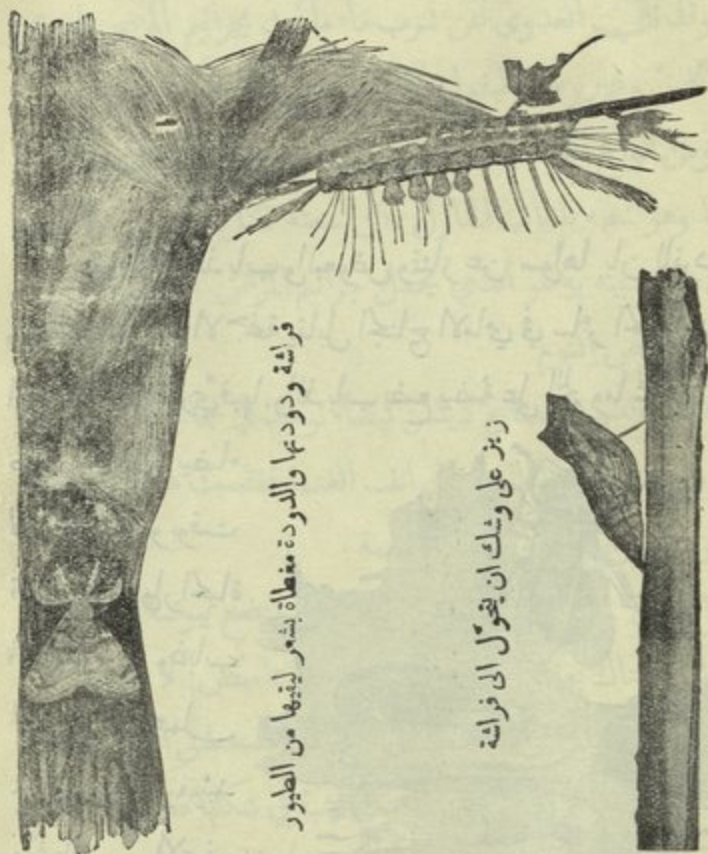 فراشة ودودتها والدودة مغطاة بشعر ليقيها من الطيور
زيز على وشك ان يتحوّل الى فراشة